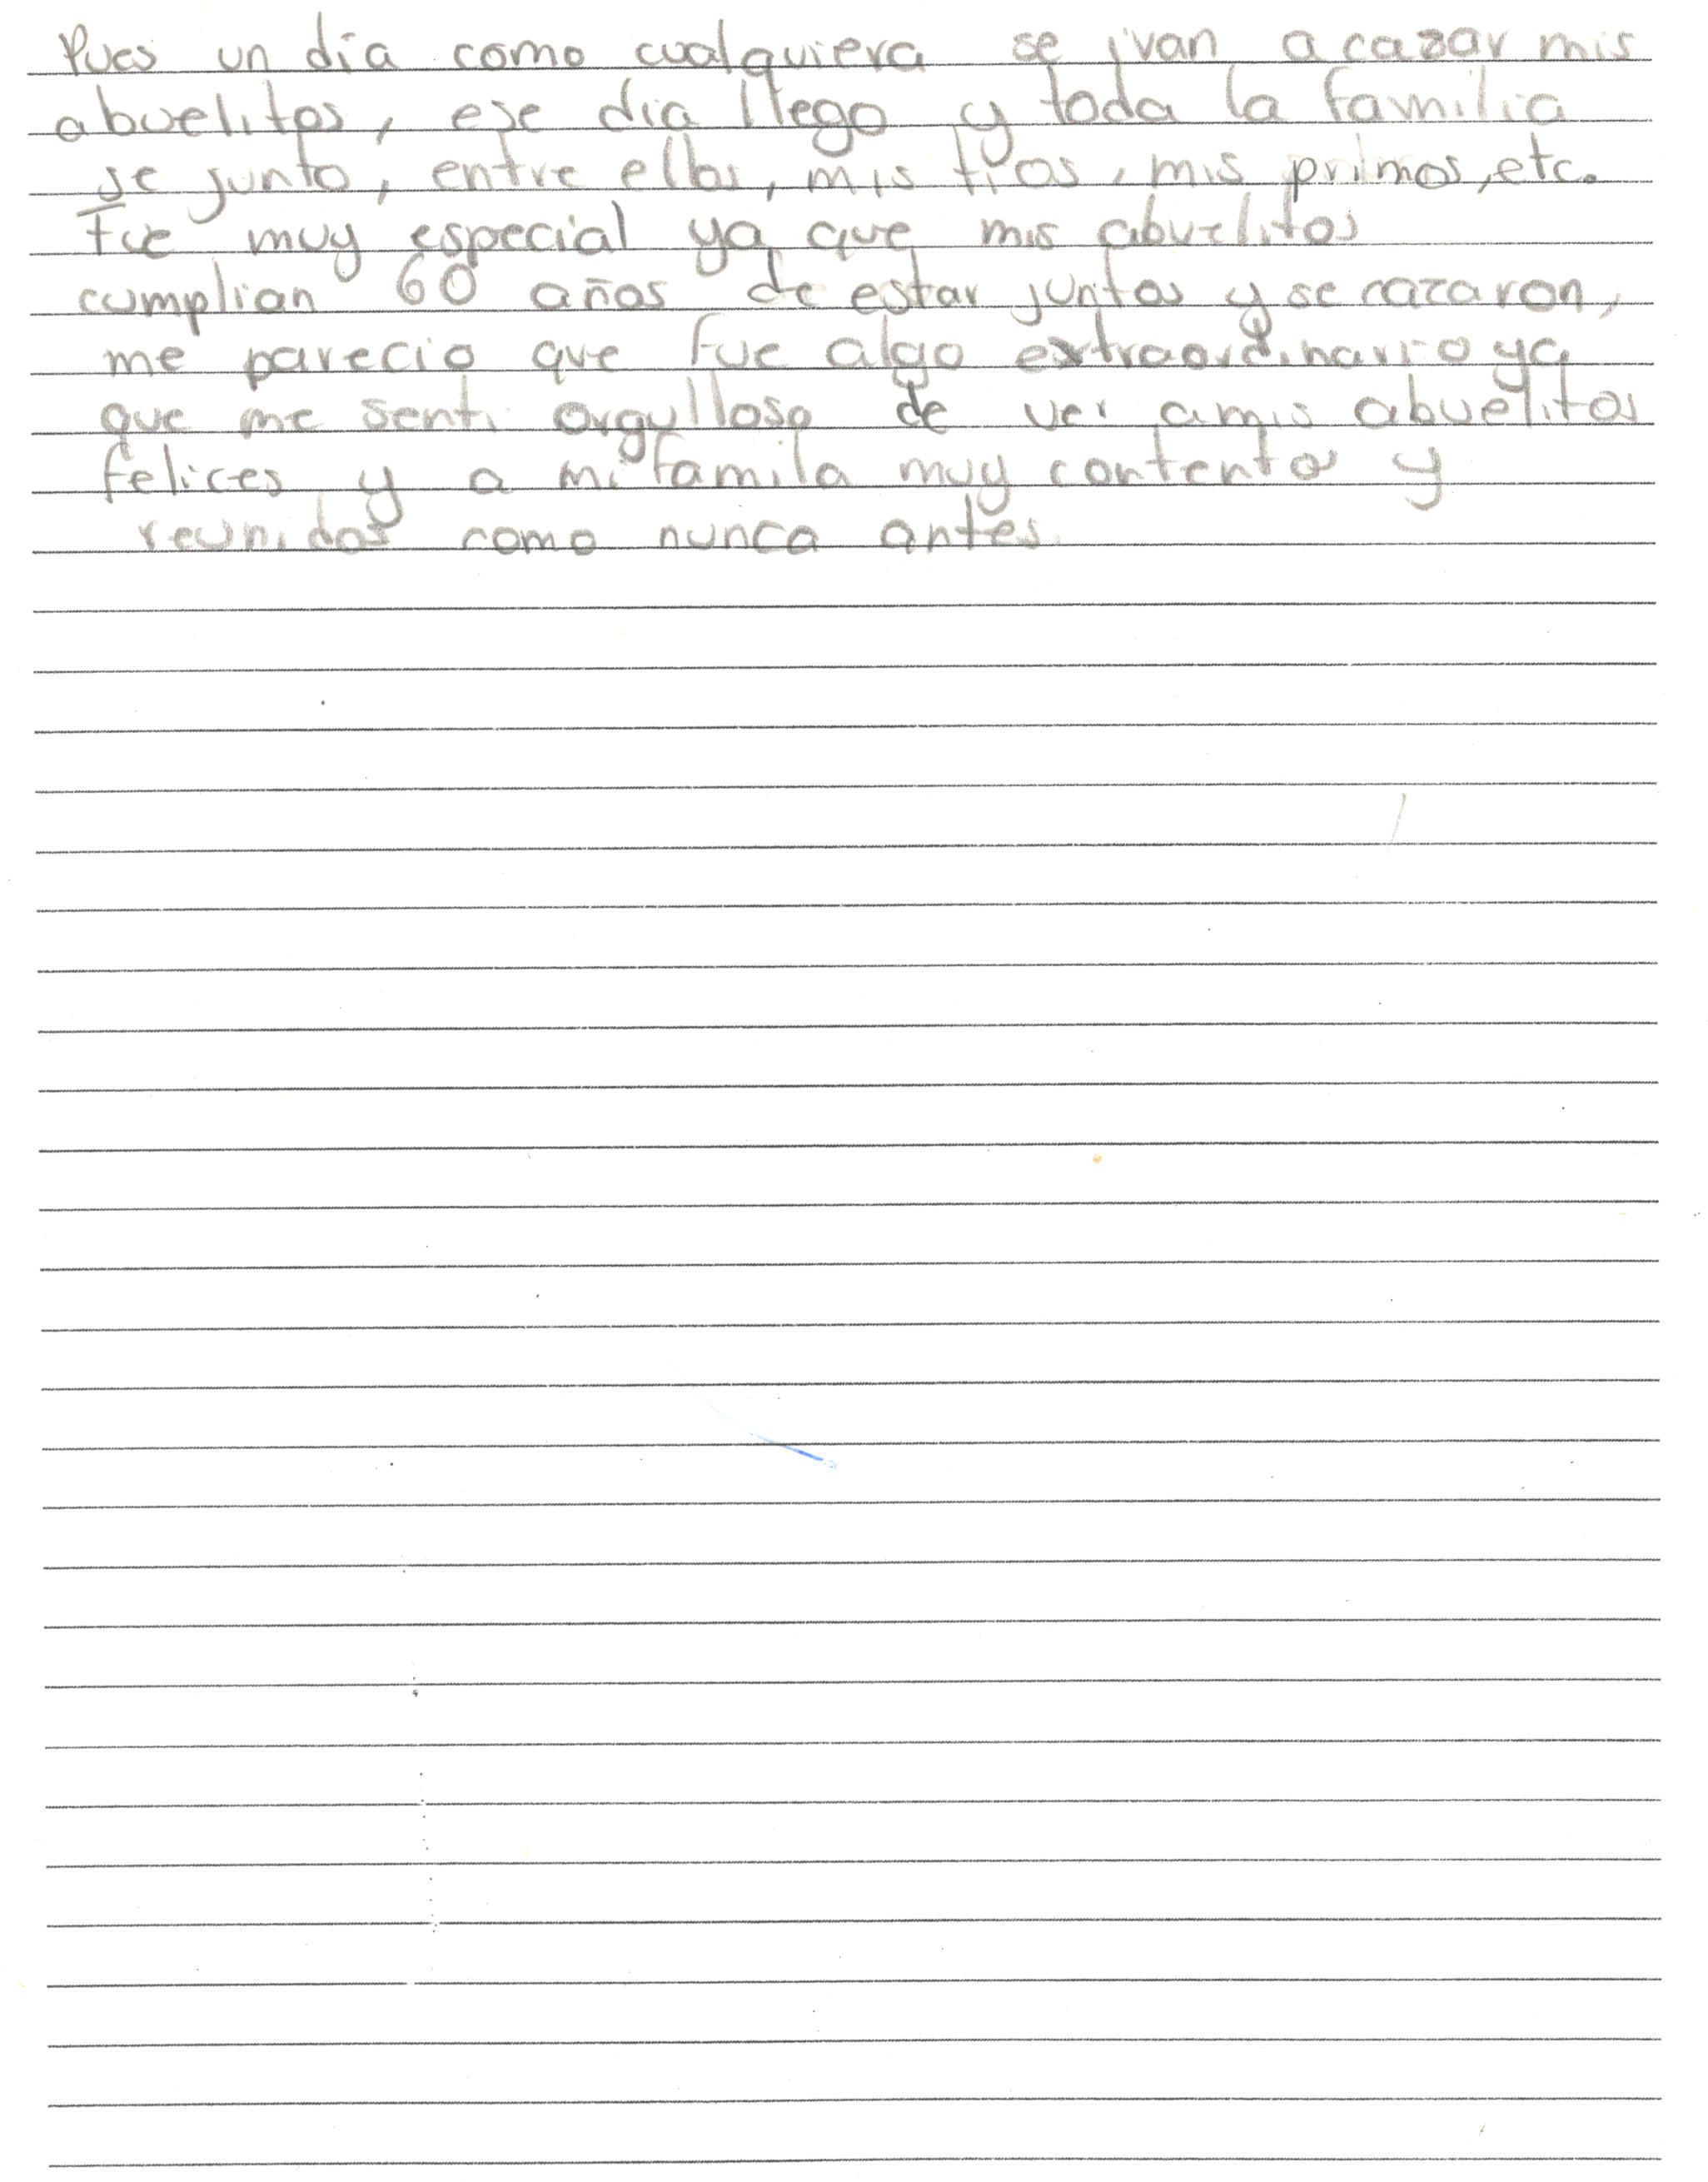 Pues un día como cualquiera se ivan a cazar mis
abuelitos, ese dia llego y toda la familia
se junto, entre ellos, mis tios, mis primos, etc.
Fue muy especial ya que mis abuelitos
cumplian 60 años de estar juntos y se cazaron,
me parecio que fue algo extraordinario ya
que me senti orgulloso de ver a mis abuelitos
felices y a mi famila muy contentos y
reunidos como nunca antes.